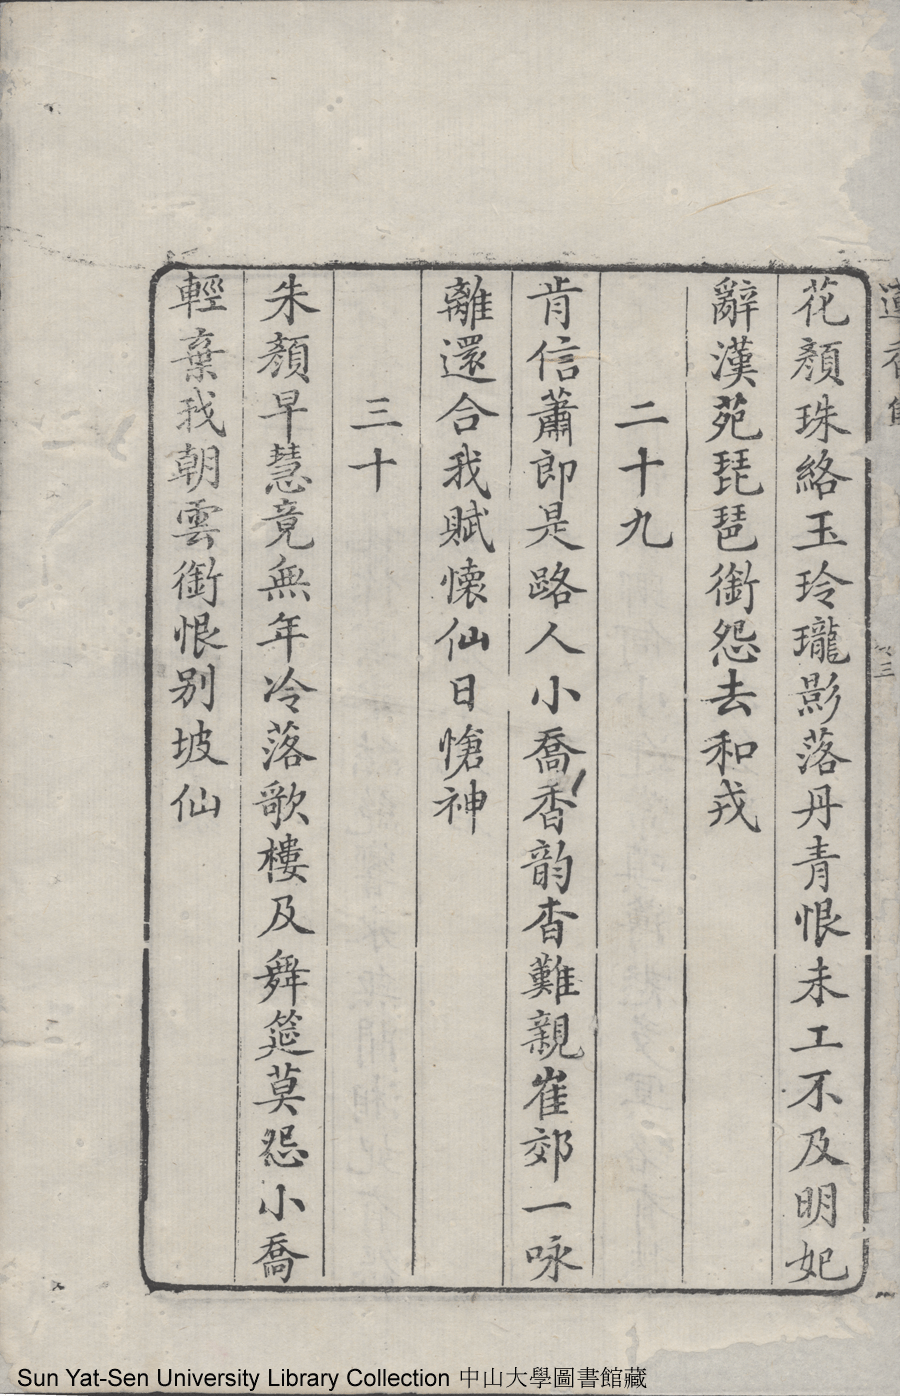 花顏珠絡玉玲瓏影落丹青恨未工不及明妃
辭漢苑琵琶銜怨去和戎
二十九
肯信蕭郎是路人小喬香韵杳難親崔郊一咏
離還合我賦懷仙日愴神
三十
朱顏早慧竟無年冷落歌樓及舞筵莫怨小喬
輕棄我朝雲銜恨別坡仙
Sun Yat-Sen University Library Collection 中山大學圖書館藏